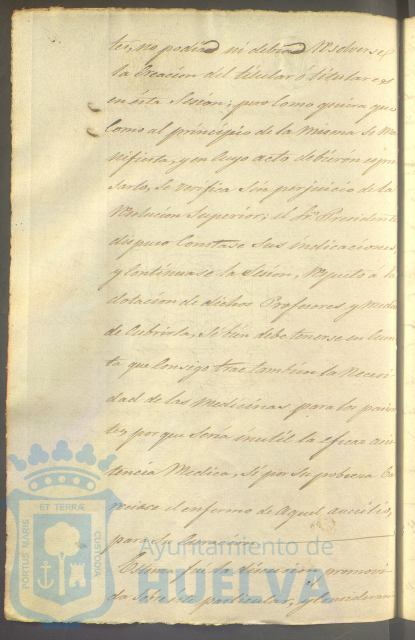 tes, no podía ni debía resolverse
la Creacion del titular ó titulares
en ésta Sesion; pero como quiera que
como al principio de la misma se ma
nifiesta, y en cuyo acto debieron expre
sarlo, se verifica sin perjuicio de la
resolucion Superior; el Sr. Presidente
dispuso Constase sus indicaciones,
y Continuase la Sesion. Respecto a la
dotacion de dichos Profesores y medio
de Cubrirla, si bien debe tenerse en Cuen
ta que Consigo trae tambien la Necesi
dad de las medicinas para los
tes, por que sería inutil la eficaz asis
tencia Medica, si por su pobreza Ca
reciase el enfermo de Aquel auxilio,
para su Curacion.
fué la discusion promovi
da sobre este particular, y Considerando
PORTUS MARIS
ET TERRÆ
CUSTODIA
Ayuntamiento de
HUELVA